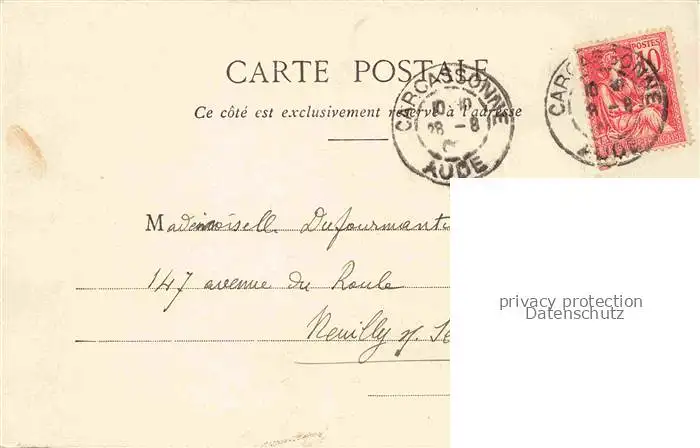 CARTE POSTALE
Ce côté est exclusivement réservé à l'adresse
CARCASSONNE
10 
28 -8
AUDE
CARCASSONNE
10
8 -8
AUDE
POSTES
10
Mademoiselle Dufourmant
147 avenue du Roule
Neuilly s/ Se
privacy protection
Datenschutz